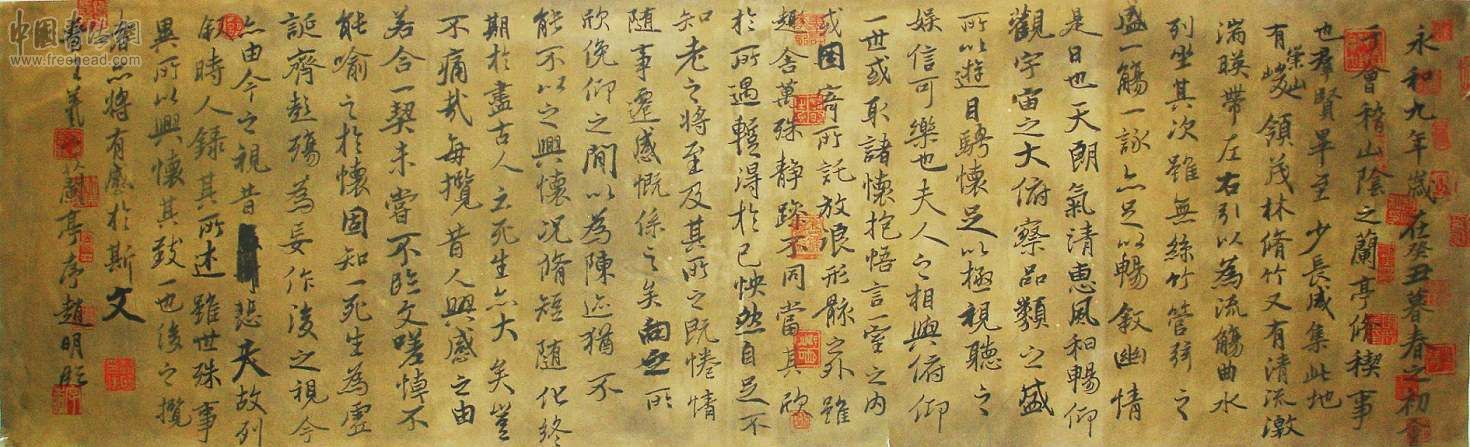 中国书法网
www.freehead.com
永和九年歲在癸丑暮春之初會
于會稽山陰之蘭亭脩稧事
也群賢畢至少長咸集此地
有崇山峻領茂林脩竹又有清流激
湍暎帶左右引以為流觴曲水
列坐其次雖無絲竹管弦之
盛一觴一詠亦足以暢敘幽情
是日也天朗氣清惠風和暢仰
觀宇宙之大俯察品類之盛
所以遊目騁懷足以極視聽之
娛信可樂也夫人之相與俯仰
一世或取諸懷抱悟言一室之內
或因寄所託放浪形骸之外雖
趣舍萬殊靜躁不同當其欣
於所遇蹔得於己怏然自足不
知老之將至及其所之既惓情
隨事遷感慨係之矣向之所
欣俛仰之間以為陳迹猶不
能不以之興懷況脩短隨化終
期於盡古人云死生亦大矣豈
不痛哉每攬昔人興感之由
若合一契未嘗不臨文嗟悼不
能喻之於懷固知一死生為虛
誕齊彭殤為妄作後之視今
亦由今之視昔悲夫故列
敘時人錄其所述雖世殊事
異所以興懷其致一也後之攬
者亦將有感於斯文
書王羲蘭亭序趙明